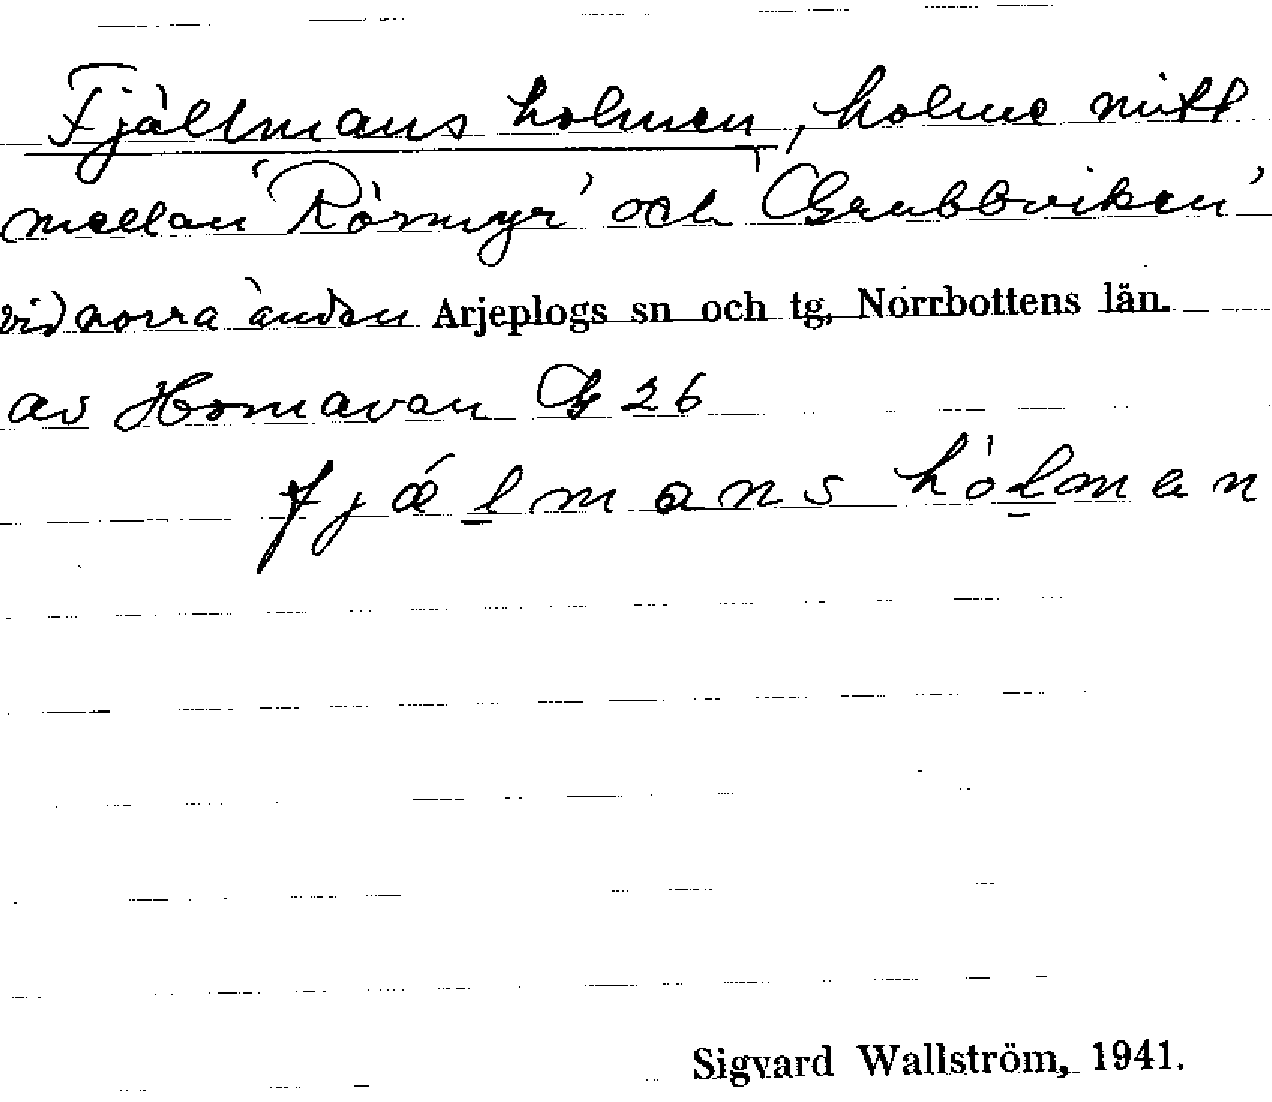 Fjällmansholmen, holme mitt
mellan 'Rörmyr' och 'Grubbviken'
vid norra ändan Arjeplogs sn och tg, Norrbottens län.
av Hornavan G 26
fjälmans hòlman
Sigvard Wallström, 1941.